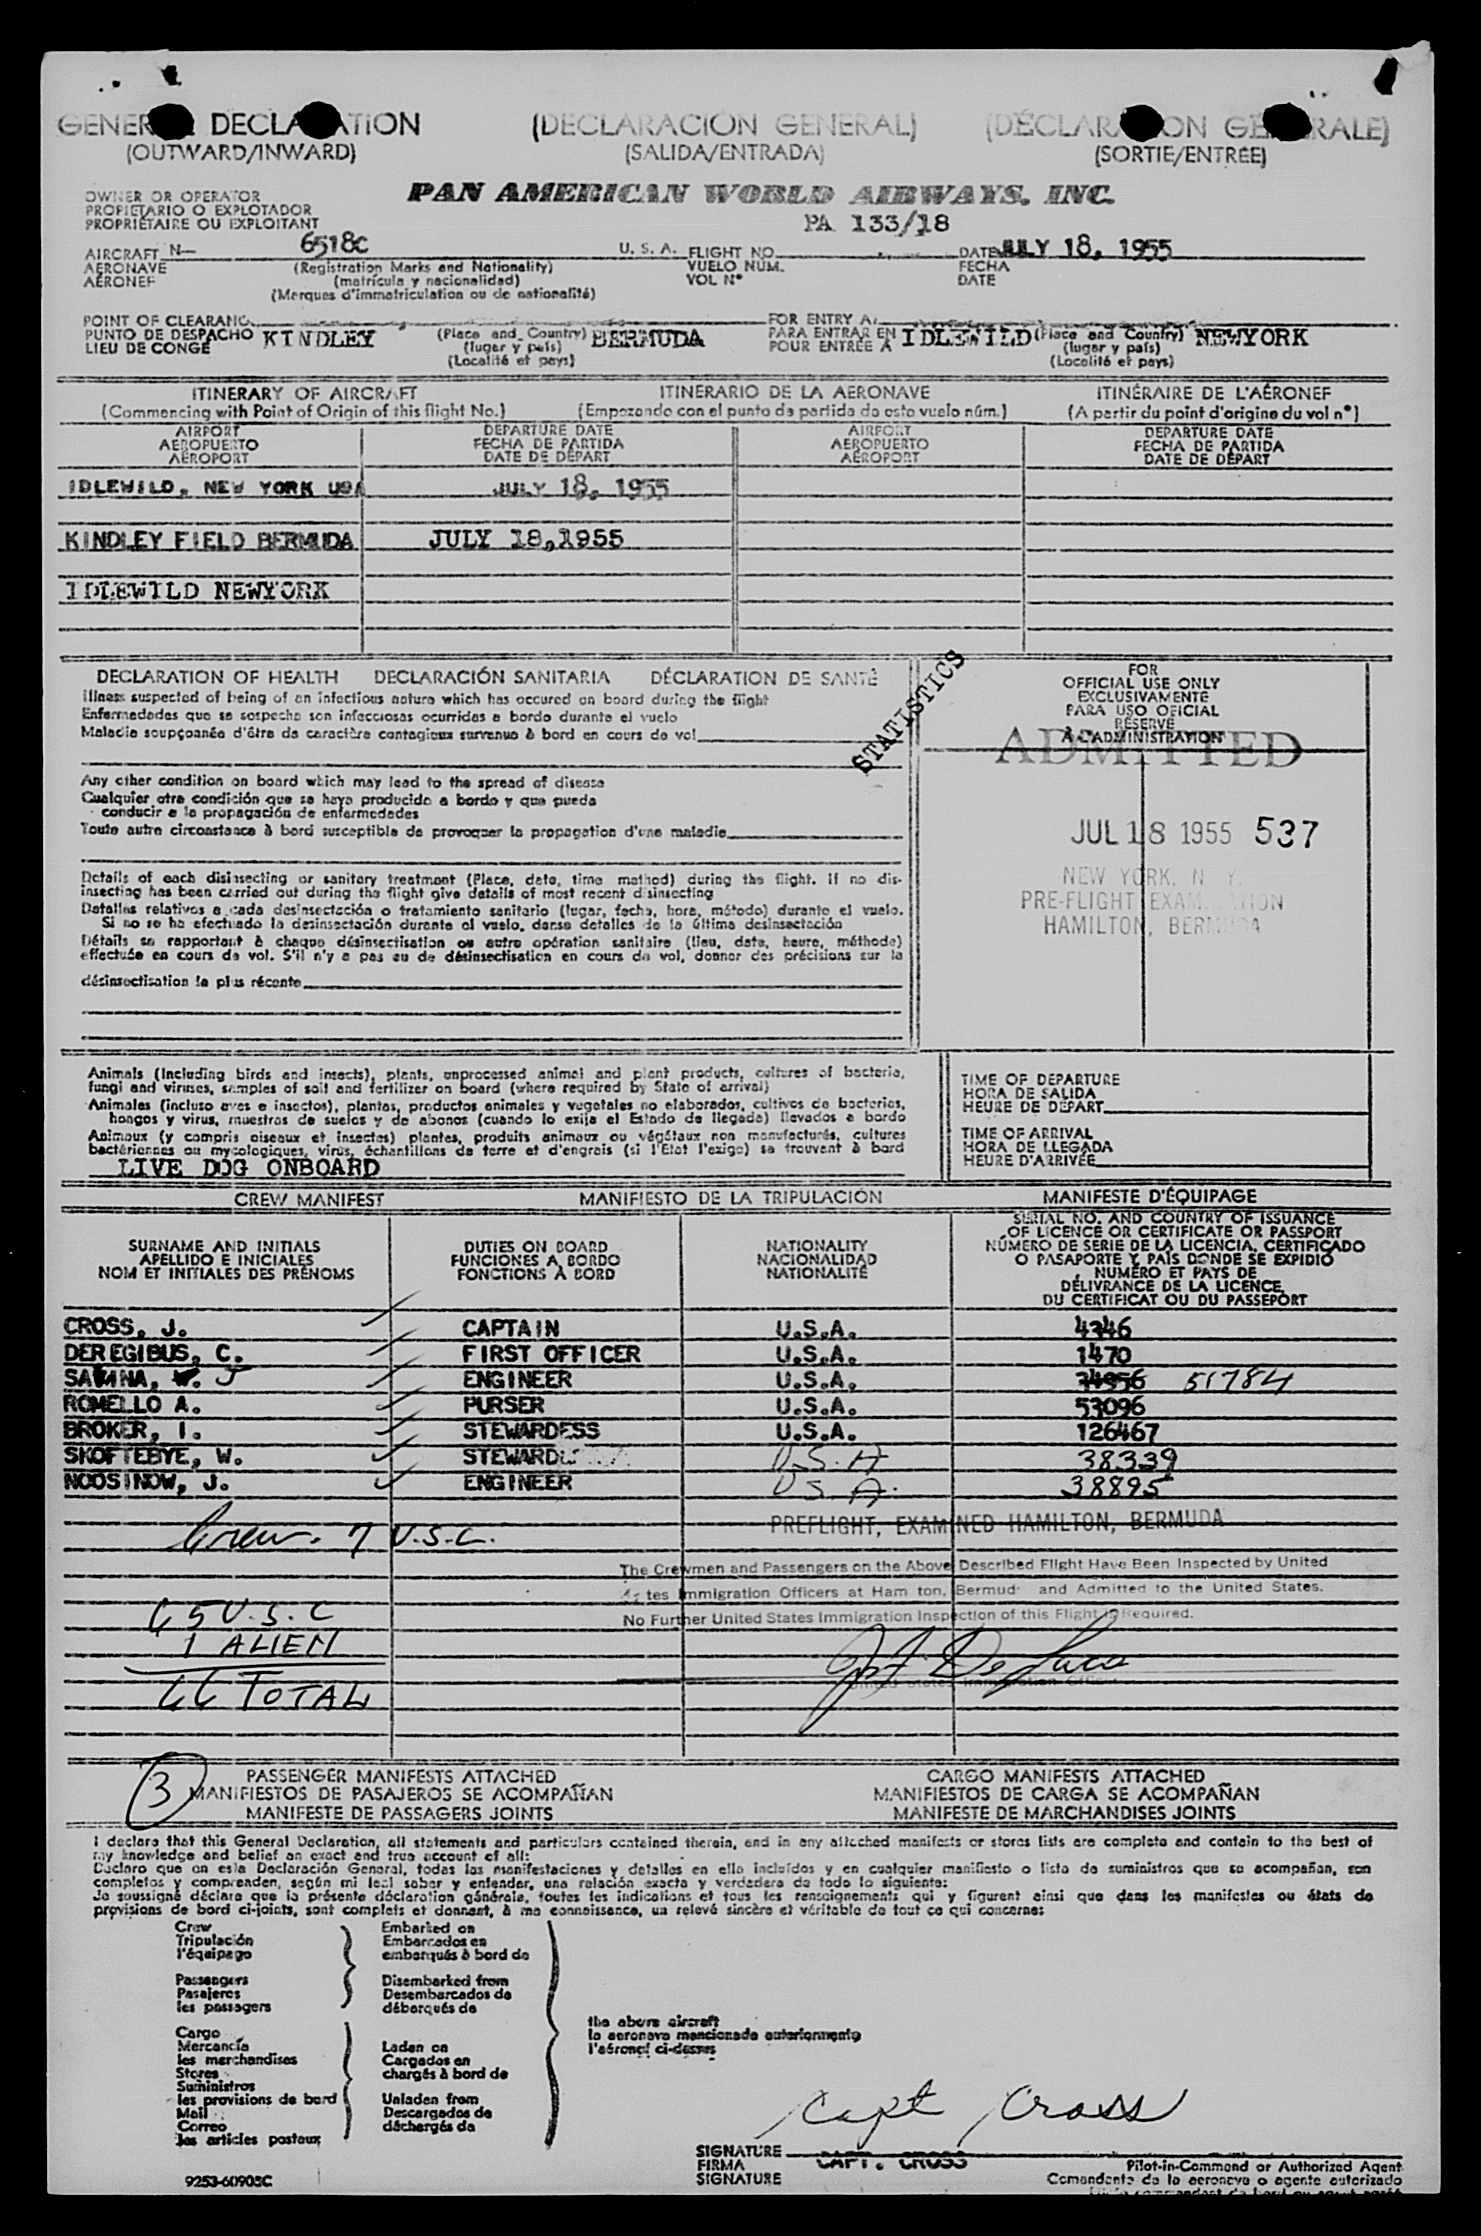 GENERAL DECLARATION (DECLARACIÓN GENERAL) (DÉCLARATION GÉNÉRALE)
(OUTWARD/INWARD) (SALIDA/ENTRADA) (SORTIE/ENTRÉE)
OWNER OR OPERATOR PAN AMERICAN WORLD AIRWAYS, INC.
PROPIETARIO O EXPLOTADOR
PROPRIÉTAIRE OU EXPLOITANT PA 133/18
AIRCRAFT N— 6518C U. S. A. FLIGHT NO. DATE JULY 18, 1955
AERONAVE (Registration Marks and Nationality) VUELO NÚM. FECHA
AÉRONEF (matrícula y nacionalidad) VOL N° DATE
(Marques d'immatriculation ou de nationalité)
POINT OF CLEARANC FOR ENTRY A
PUNTO DE DESPACHO KINDLEY (Place and Country) BERMUDA PARA ENTRAR EN IDLEWILD (Place and Country) NEWYORK
LIEU DE CONGÉ (lugar y país) POUR ENTRÉE À (lugar y país)
(Localité et pays) (Localité et pays)
ITINERARY OF AIRCRAFT ITINERARIO DE LA AERONAVE ITINÉRAIRE DE L'AÉRONEF
(Commencing with Point of Origin of this flight No.) (Empezando con el punto de partida de este vuelo núm.) (A partir du point d'origine du vol n°)
AIRPORT DEPARTURE DATE AIRPORT DEPARTURE DATE
AEROPUERTO FECHA DE PARTIDA AEROPUERTO FECHA DE PARTIDA
AÉROPORT DATE DE DÉPART AÉROPORT DATE DE DÉPART
IDLEWILD, NEW YORK USA JULY 18, 1955
KINDLEY FIELD BERMUDA JULY 18,1955
IDLEWILD NEWYORK
DECLARATION OF HEALTH DECLARACIÓN SANITARIA DÉCLARATION DE SANTÉ
Illness suspected of being of an infectious nature which has occured on board during the flight
Enfermedades que se sospecha son infecciosas ocurridas a bordo durante el vuelo
Maladie soupçonnée d'être de caractère contagieux survenue à bord en cours de vol
STATISTICS
FOR
OFFICIAL USE ONLY
EXCLUSIVAMENTE
PARA USO OFICIAL
RÉSERVÉ
À L'ADMINISTRATION
ADMITTED
Any other condition on board which may lead to the spread of disease
Cualquier otra condición que se haya producido a bordo y que pueda
conducir a la propagación de enfermedades
Toute autre circonstance à bord susceptible de provoquer la propagation d'une maladie
JUL 18 1955 537
NEW YORK, N. Y.
PRE-FLIGHT EXAMINATION
HAMILTON, BERMUDA
Details of each disinsecting or sanitary treatment (Place, date, time method) during the flight. If no dis-
insecting has been carried out during the flight give details of most recent disinsecting
Detalles relativos a cada desinsectación o tratamiento sanitario (lugar, fecha, hora, método) durante el vuelo.
Si no se ha efectuado la desinsectación durante el vuelo, danse detalles de la última desinsectación
Détails se rapportant à chaque désinsectisation ou autre opération sanitaire (lieu, date, heure, méthode)
effectuée en cours de vol. S'il n'y a pas eu de désinsectisation en cours de vol, donner des précisions sur la
désinsectisation la plus récente
Animals (Including birds and insects), plants, unprocessed animal and plant products, cultures of bacteria,
fungi and viruses, samples of soil and fertilizer on board (where required by State of arrival)
Animales (incluso aves e insectos), plantas, productos animales y vegetales no elaborados, cultivos de bacterias,
hongos y virus, muestras de suelos y de abonos (cuando lo exija el Estado de llegada) llevados a bordo
Animaux (y compris oiseaux et insectes) plantes, produits animaux ou végétaux non manufacturés, cultures
bactériennes ou mycologiques, virus, échantillons de terre et d'engrais (si l'Etat l'exige) se trouvant à bord
LIVE DOG ONBOARD
TIME OF DEPARTURE
HORA DE SALIDA
HEURE DE DÉPART
TIME OF ARRIVAL
HORA DE LLEGADA
HEURE D'ARRIVÉE
CREW MANIFEST MANIFIESTO DE LA TRIPULACIÓN MANIFESTE D'ÉQUIPAGE
SURNAME AND INITIALS
APELLIDO E INICIALES
NOM ET INITIALES DES PRÉNOMS
DUTIES ON BOARD
FUNCIONES A BORDO
FONCTIONS À BORD
NATIONALITY
NACIONALIDAD
NATIONALITÉ
SERIAL NO. AND COUNTRY OF ISSUANCE
OF LICENCE OR CERTIFICATE OR PASSPORT
NÚMERO DE SERIE DE LA LICENCIA, CERTIFICADO
O PASAPORTE Y PAÍS DONDE SE EXPIDIÓ
NUMÉRO ET PAYS DE
DÉLIVRANCE DE LA LICENCE,
DU CERTIFICAT OU DU PASSEPORT
CROSS, J. CAPTAIN U.S.A. 4346
DEREGIBUS, C. FIRST OFFICER U.S.A. 1470
J ENGINEER U.S.A. 74956 51784
ROMELLO A. PURSER U.S.A. 53096
BROKER, I. STEWARDESS U.S.A. 126467
SKOFTEBYE, W. STEWARD U.S.A 38339
NOOSINOW, J. ENGINEER U S A. 38895
Crew. 7 U.S.C.
PREFLIGHT, EXAMINED HAMILTON, BERMUDA
The Crewmen and Passengers on the Above Described Flight Have Been Inspected by United
States Immigration Officers at Hamilton, Bermuda and Admitted to the United States.
No Further United States Immigration Inspection of this Flight is Required.
65 U.S.C
1 ALIEN
66 TOTAL
United States Immigration Officer
3
PASSENGER MANIFESTS ATTACHED CARGO MANIFESTS ATTACHED
MANIFIESTOS DE PASAJEROS SE ACOMPAÑAN MANIFIESTOS DE CARGA SE ACOMPAÑAN
MANIFESTE DE PASSAGERS JOINTS MANIFESTE DE MARCHANDISES JOINTS
I declare that this General Declaration, all statements and particulars contained therein, and in any attached manifests or stores lists are complete and contain to the best of
my knowledge and belief an exact and true account of all:
Declaro que en esta Declaración General, todas las manifestaciones y detalles en ella incluídos y en cualquier manifiesto o lista de suministros que se acompañan, son
completos y comprenden, según mi leal saber y entender, una relación exacta y verdadera de todo lo siguiente:
Je soussigné déclare que la présente déclaration générale, toutes les indications et tous les renseignements qui y figurent ainsi que dans les manifestes ou états de
provisions de bord ci-joints, sont complets et donnent, à ma connaissance, un relevé sincère et véritable de tout ce qui concerne:
Crew Embarked on
Tripulación Embarcados en
l'équipage embarqués à bord de
Passengers Disembarked from
Pasajeros Desembarcados de
les passagers débarqués de
the above aircraft
la aeronave mencionada anteriormente
l'aéronef ci-dessus
Cargo
Mercancía Laden on
les marchandises Cargados en
Stores chargés à bord de
Suministros
les provisions de bord Unladen from
Mail Descargados de
Correo déchargés de
les articles postaux
Capt Cross
SIGNATURE CAPT. CROSS
FIRMA Pilot-in-Command or Authorized Agent
SIGNATURE Comandante de la aeronave o agente autorizado
9253-60905C